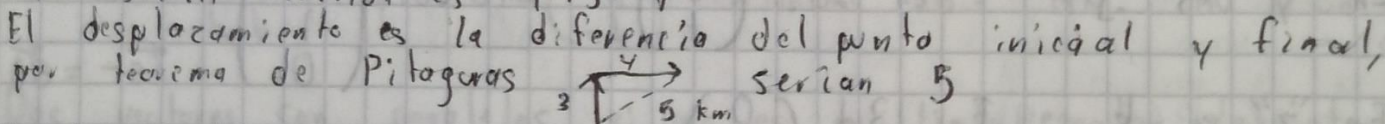 El desplazamiento es la diferencia del punto inicial y final,
por teorema de Pitagoras 3 4 5 km serian 5